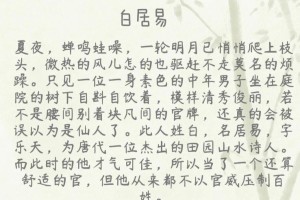 白居易
夏夜，蝉鸣蛙噪，一轮明月已悄悄爬上枝
头，微热的风儿怎的也驱赶不走莫名的烦
躁。只见一位一身素色的中年男子坐在庭
院的树下自斟自饮着，模样清秀俊丽，若
不是腰间别着块凡间的官牌，还真的会被
误以为是仙人了。此人姓白，名居易，字
乐天，为唐代一位杰出的田园山水诗人。
而此时的他才气可佳，所以当了一个还算
舒适的官，但他从来都不以官威压制百
姓。